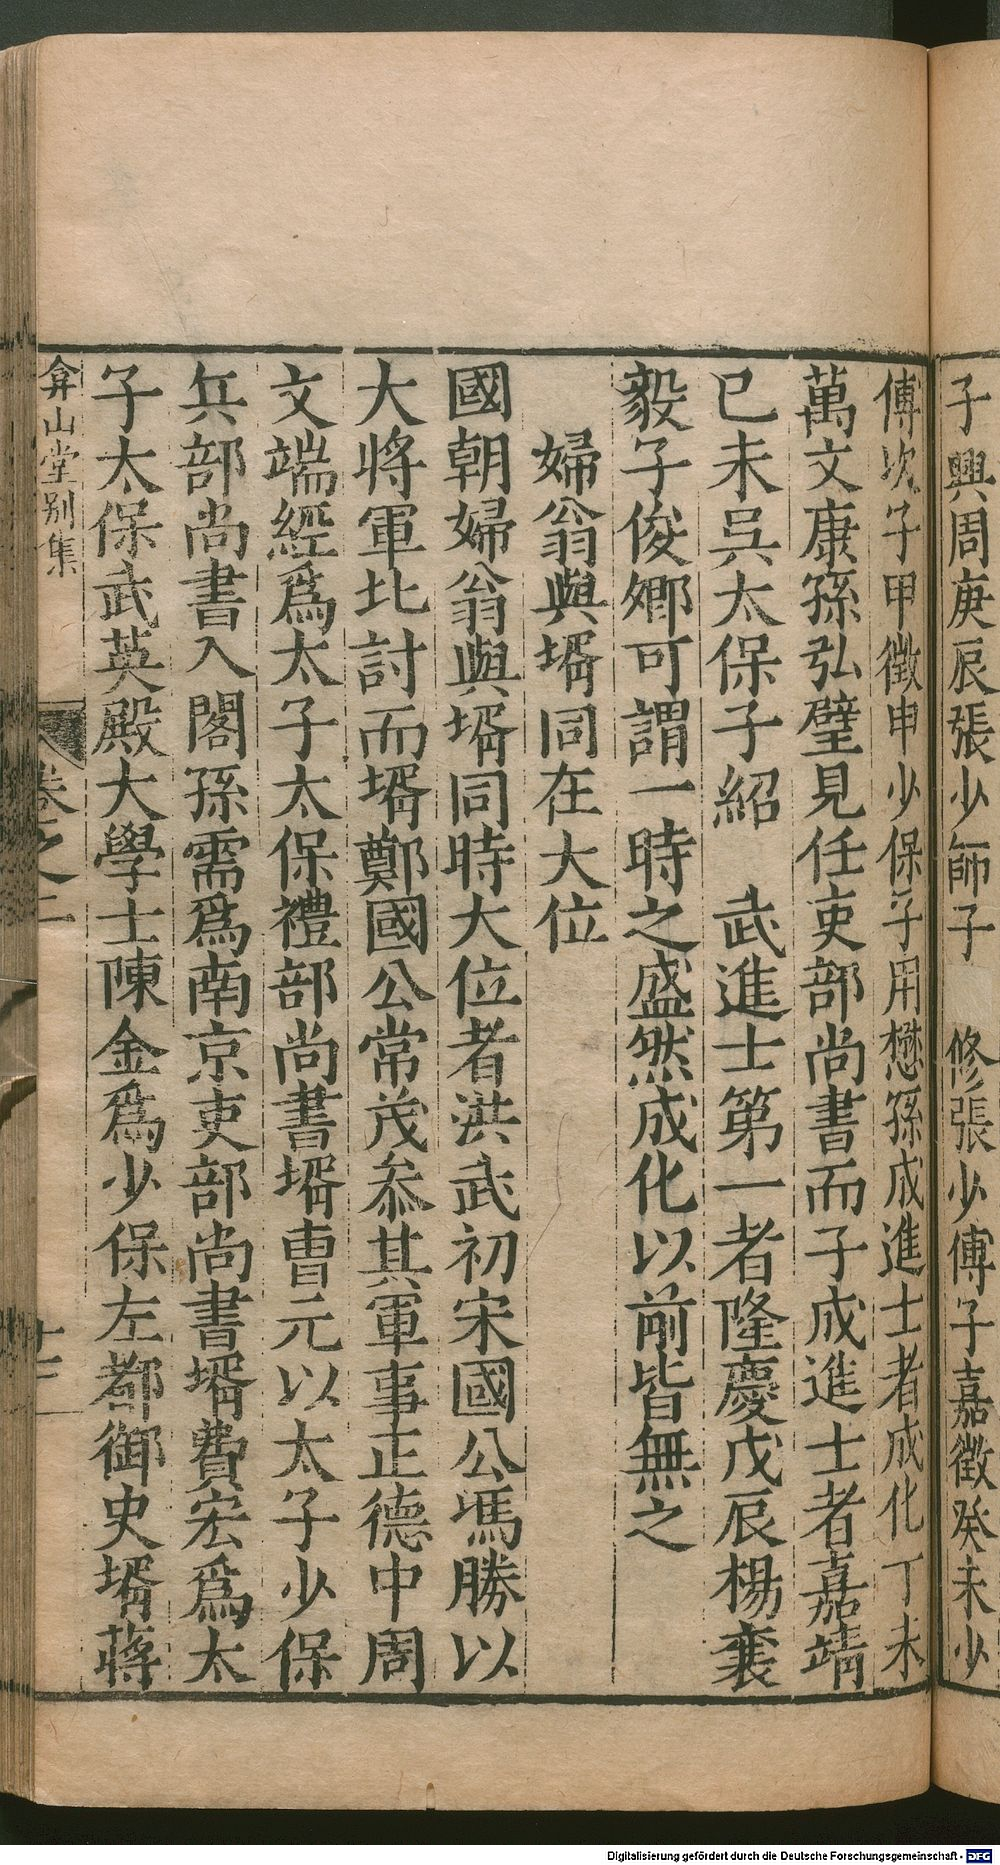 子興周庚辰張少師子　修張少傅子嘉徵癸未少
傅次子甲徵申少保子用懋孫成進士者成化丁未
萬文康孫弘璧見任吏部尚書而子成進士者嘉靖
已未吳太保子紹　武進士第一者隆慶戊辰楊襄
毅子俊卿可謂一時之盛然成化以前皆無之
婦翁與壻同在大位
國朝婦翁與壻同時大位者洪武初宋國公馮勝以
大將軍北討而壻鄭國公常茂叅其軍事正德中周
文端經爲太子太保禮部尚書壻曹元以太子少保
兵部尚書入閣孫需爲南京吏部尚書壻費宏爲太
子太保武英殿大學士陳金爲少保左都御史壻蔣
弇山堂别集
卷之二
Digitalisierung gefördert durch die Deutsche Forschungsgemeinschaft - DFG